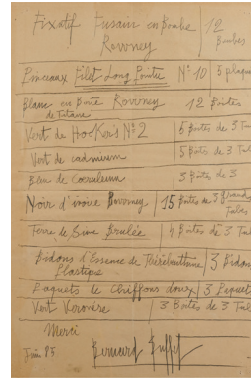 Fixatif Fusain en Bombe 12
Rowney Bombes
Pinceaux Filet Long Pointu N° 10 5 plaq
Blanc en Poudre Rowney 12 Boites
de Titane
Vert de Hooker's N° 2 5 Boites de 3 Tub
Vert de cadmium 5 Boites de 3 Tub
Bleu de Coeruleum 3 Boites de 3
Noir d'ivoire Rowney 15 Boites de 3 grands
Tubes
Terre de Sienne Brulée Boites de 3 Tub
Bidons d'Essence de Térébenthine 3 Bidon
Plastique
Paquets de Chiffons doux 3 Paquet
Vert Véronèse 3 Boites de 3 Tub
Merci
Juin 85 Bernard Buffet